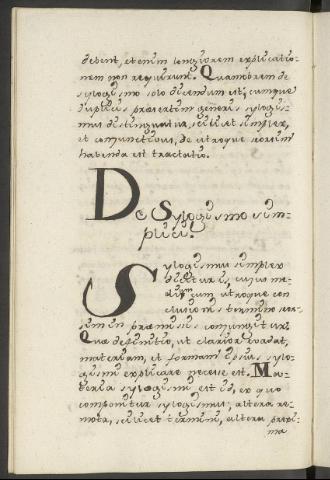 debent, etenim longiorem explicatio-
nem non requirunt. Quamobrem de
sylogismo solo dicendum est; cumque
duplicis praesertim generis sylogis-
mus distinguatur, scilicet simplex,
et conjunctivus, de utroque seorsim
habenda est tractatio.
De Sylogismo sim-
plici.
Sylogismus simplex
dicitur is, cujus me-
dium cum utroque con
clusionis termino seor-
sim in praemissis conjungitur.
Quae definitio, ut clarior evadat,
materiam, et formam ipsius sylo-
gismi explicare necesse est. Ma-
teria sylogismi est id, ex quo
componitur sylogismus, altera re-
mota, scilicet termini, altera proxi-
ma